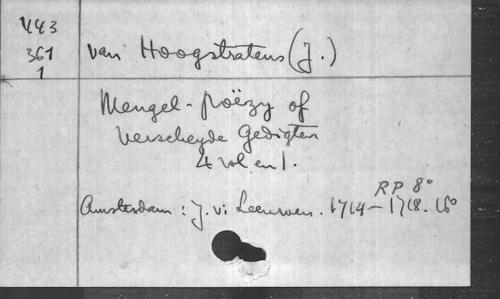 443
361
1
van Hoogstratens (J.)
Mengel-poëzy of
verscheyde Gedigten
4 vol en 1.
RP 8°
Amsterdam: J. v. Leeuwen. 1714–1718. 16°